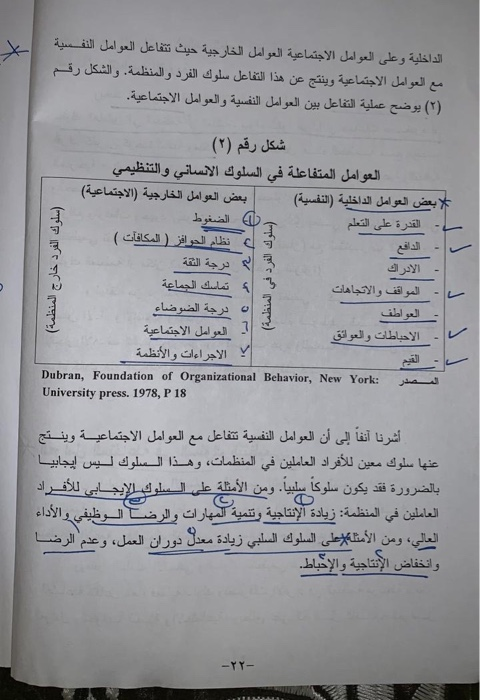 الداخلية وعلى العوامل الاجتماعية العوامل الخارجية حيث تتفاعل العوامل النفسية
مع العوامل الاجتماعية وينتج عن هذا التفاعل سلوك الفرد والمنظمة. والشكل رقم
(٢) يوضح عملية التفاعل بين العوامل النفسية والعوامل الاجتماعية.
شكل رقم (٢)
العوامل المتفاعلة في السلوك الانساني والتنظيمي
بعض العوامل الداخلية (النفسية)
- القدرة على التعلم
- الدافع
- الادراك
- المواقف والاتجاهات
- العواطف
- الاحباطات والعوائق
- القيم
(سلوك الفرد في المنظمة)
بعض العوامل الخارجية (الاجتماعية)
١ الضغوط
٢ نظام الحوافز ( المكافآت )
٣ درجة الثقة
٤ تماسك الجماعة
٥ درجة الضوضاء
٦ العوامل الاجتماعية
٧ الاجراءات والأنظمة
(سلوك الفرد خارج المنظمة)
المصدر Dubran, Foundation of Organizational Behavior, New York:
University press. 1978, P 18
أشرنا آنفاً إلى أن العوامل النفسية تتفاعل مع العوامل الاجتماعية وينتج
عنها سلوك معين للأفراد العاملين في المنظمات، وهذا السلوك ليس إيجابيا
بالضرورة فقد يكون سلوكاً سلبياً. ومن الأمثلة على السلوك الإيجابي للأفراد
العاملين في المنظمة: زيادة الإنتاجية وتنمية المهارات والرضا الوظيفي والأداء
العالي، ومن الأمثلة على السلوك السلبي زيادة معدل دوران العمل، وعدم الرضا
وانخفاض الإنتاجية والإحباط.
-٢٢-